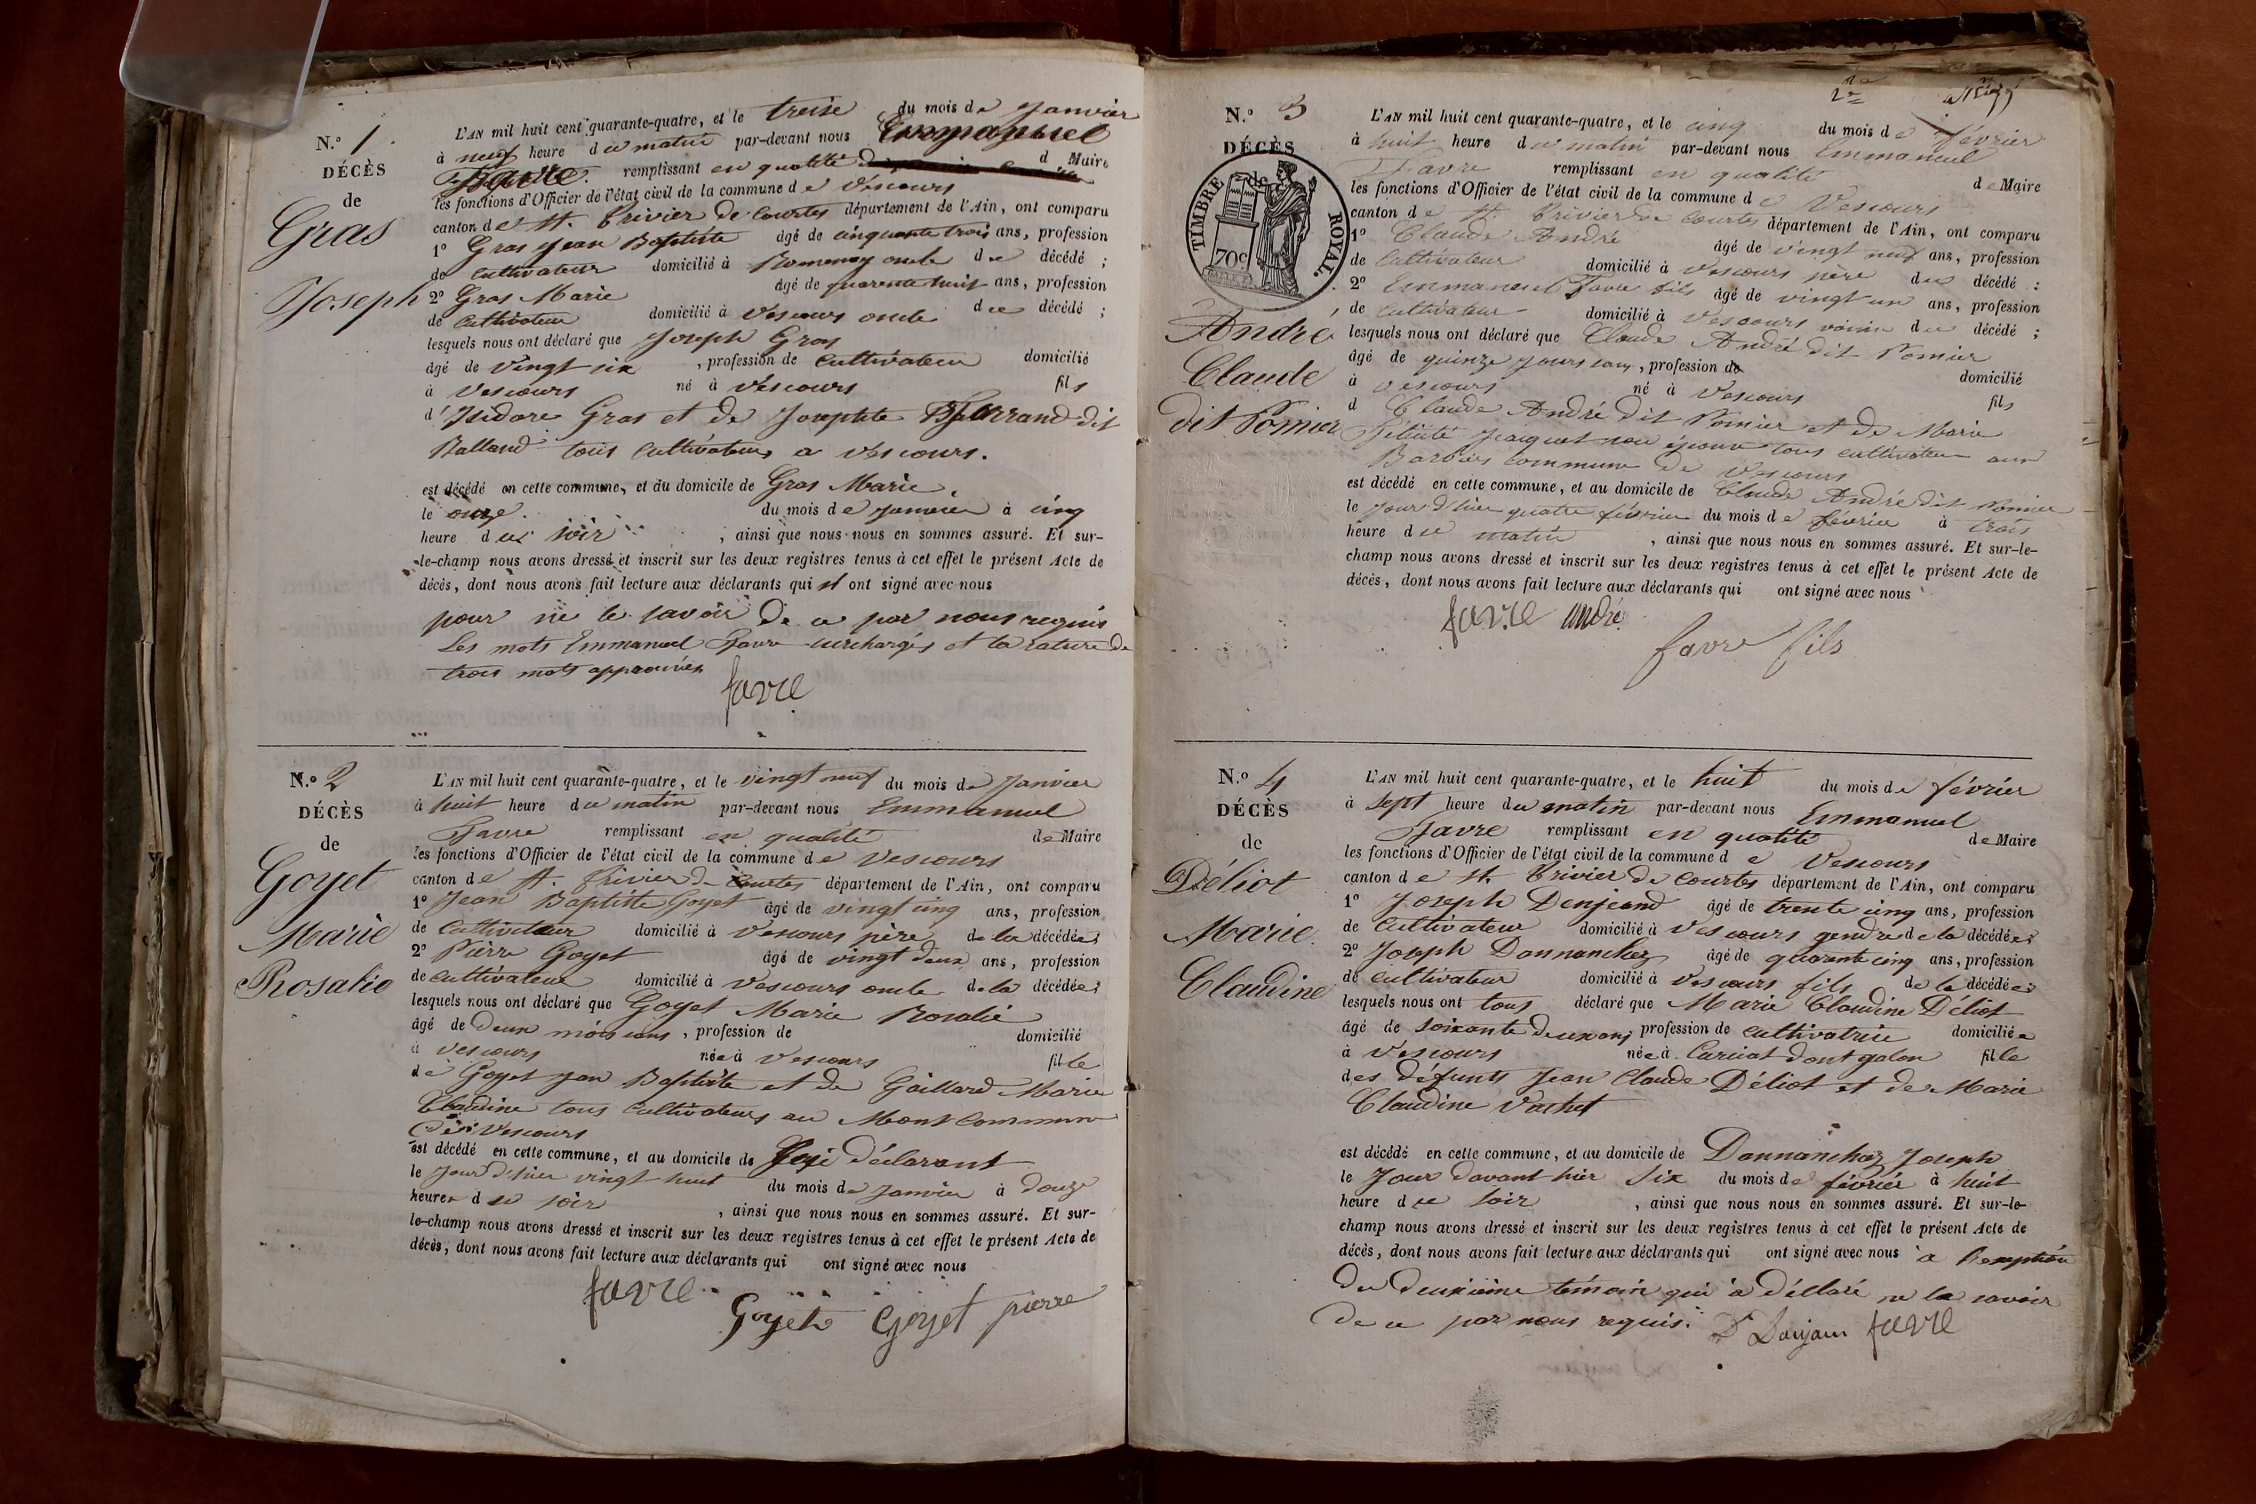 N.º 1
DÉCÈS
de
Gras
Joseph
L'AN mil huit cent quarante-quatre, et le treise du mois de Janvier
à neuf heure du matin par-devant nous Emmanuel
Favre remplissant en qualité d Maire
les fonctions d'Officier de l'état civil de la commune de Vescours
canton de St. Trivier de Courtes département de l'Ain, ont comparu
1º Gras Jean Baptiste âgé de cinquante trois ans, profession
de Cultivateur domicilié à Romenay oncle du décédé ;
2º Gras Marie âgé de quarente huit ans, profession
de Cultivateur domicilié à Vescours oncle du décédé ;
lesquels nous ont déclaré que Joseph Gras
âgé de vingt six , profession de Cultivateur domicilié
à Vescours né à Vescours fils
d'Isidore Gras et de Josephte Ferrand dit
Balland tous Cultivateurs a Vescours.
est décédé en cette commune, et au domicile de Gras Marie,
le onze du mois de Janvier à cinq
heure du soir , ainsi que nous nous en sommes assuré. Et sur-
le-champ nous avons dressé et inscrit sur les deux registres tenus à cet effet le présent Acte de
décès, dont nous avons fait lecture aux déclarants qui n ont signé avec nous
pour ne le savoir De ce par nous requis
Les mots Emmanuel Favre surchargés et la rature de
trois mots approuvés
favre
N.º 2
DÉCÈS
de
Goyet
Marie
Rosalie
L'AN mil huit cent quarante-quatre, et le vingt neuf du mois de Janvier
à huit heure du matin par-devant nous Emmanuel
Favre remplissant en qualité de Maire
les fonctions d'Officier de l'état civil de la commune de Vescours
canton de St. Trivier de Courtes département de l'Ain, ont comparu
1º Jean Baptiste Goyet âgé de vingt cinq ans, profession
de Cultivateur domicilié à Vescours père de la décédée;
2º Pierre Goyet âgé de vingt deux ans, profession
de cultivateur domicilié à Vescours oncle de la décédée;
lesquels nous ont déclaré que Goyet Marie Rosalie
âgé de deux mois , profession de domicilié
à Vescours née à Vescours fille
de Goyet Jean Baptiste et de Gaillard Marie
Claudine tous Cultivateurs au Mont Commune
de Vescours
est décédé en cette commune, et au domicile de déclarant
le Jour d'hier vingt huit du mois de Janvier à douze
heures du soir , ainsi que nous nous en sommes assuré. Et sur-
le-champ nous avons dressé et inscrit sur les deux registres tenus à cet effet le présent Acte de
décès, dont nous avons fait lecture aux déclarants qui ont signé avec nous
favre
Goyet Goyet pierre
N.º 3
DÉCÈS
de
TIMBRE ROYAL.
70c
André
Claude
dit Pomier
L'AN mil huit cent quarante-quatre, et le cinq du mois de février
à huit heure du matin par-devant nous Emmanuel
Favre remplissant en qualité de Maire
les fonctions d'Officier de l'état civil de la commune de Vescours
canton de St. Trivier de Courtes département de l'Ain, ont comparu
1º Claude André âgé de vingt neuf ans, profession
de Cultivateur domicilié à Vescours père du décédé ;
2º Emmanuel Favre fils âgé de vingt un ans, profession
de Cultivateur domicilié à Vescours voisin du décédé ;
lesquels nous ont déclaré que Claude André dit Pomier
âgé de quinze jours , profession de domicilié
à Vescours né à Vescours fils
d Claude André dit Pomier et de Marie
Jacquet son épouse tous cultivateur aux
Barbiers commune de Vescours
est décédé en cette commune, et au domicile de Claude André dit Pomier
le Jour d'hier quatre février du mois de février à trois
heure du matin , ainsi que nous nous en sommes assuré. Et sur-le-
champ nous avons dressé et inscrit sur les deux registres tenus à cet effet le présent Acte de
décès, dont nous avons fait lecture aux déclarants qui ont signé avec nous
favre andré
favre fils
N.º 4
DÉCÈS
de
Déliot
Marie
Claudine
L'AN mil huit cent quarante-quatre, et le huit du mois de février
à sept heure du matin par-devant nous Emmanuel
Favre remplissant en qualité de Maire
les fonctions d'Officier de l'état civil de la commune de Vescours
canton de St. Trivier de Courtes département de l'Ain, ont comparu
1º Joseph Denjeand âgé de trente cinq ans, profession
de Cultivateur domicilié à Vescours gendre de la décédée;
2º Joseph Dannanchez âgé de quarante cinq ans, profession
de Cultivateur domicilié à Vescours fils de la décédée
lesquels nous ont tous déclaré que Marie Claudine Déliot
âgé de soixante deux ans profession de Cultivatrice domiciliée
à Vescours née à Curciat dont galon fille
des défunts Jean Claude Déliot et de Marie
Claudine Vachet
est décédé en cette commune, et au domicile de Dannanchez Joseph
le Jour davant hier Six du mois de février à huit
heure du soir , ainsi que nous nous en sommes assuré. Et sur-le-
champ nous avons dressé et inscrit sur les deux registres tenus à cet effet le présent Acte de
décès, dont nous avons fait lecture aux déclarants qui ont signé avec nous à l'exeption
du deuxième témoin qui a déclaré ne la savoir
De ce par nous requis. favre